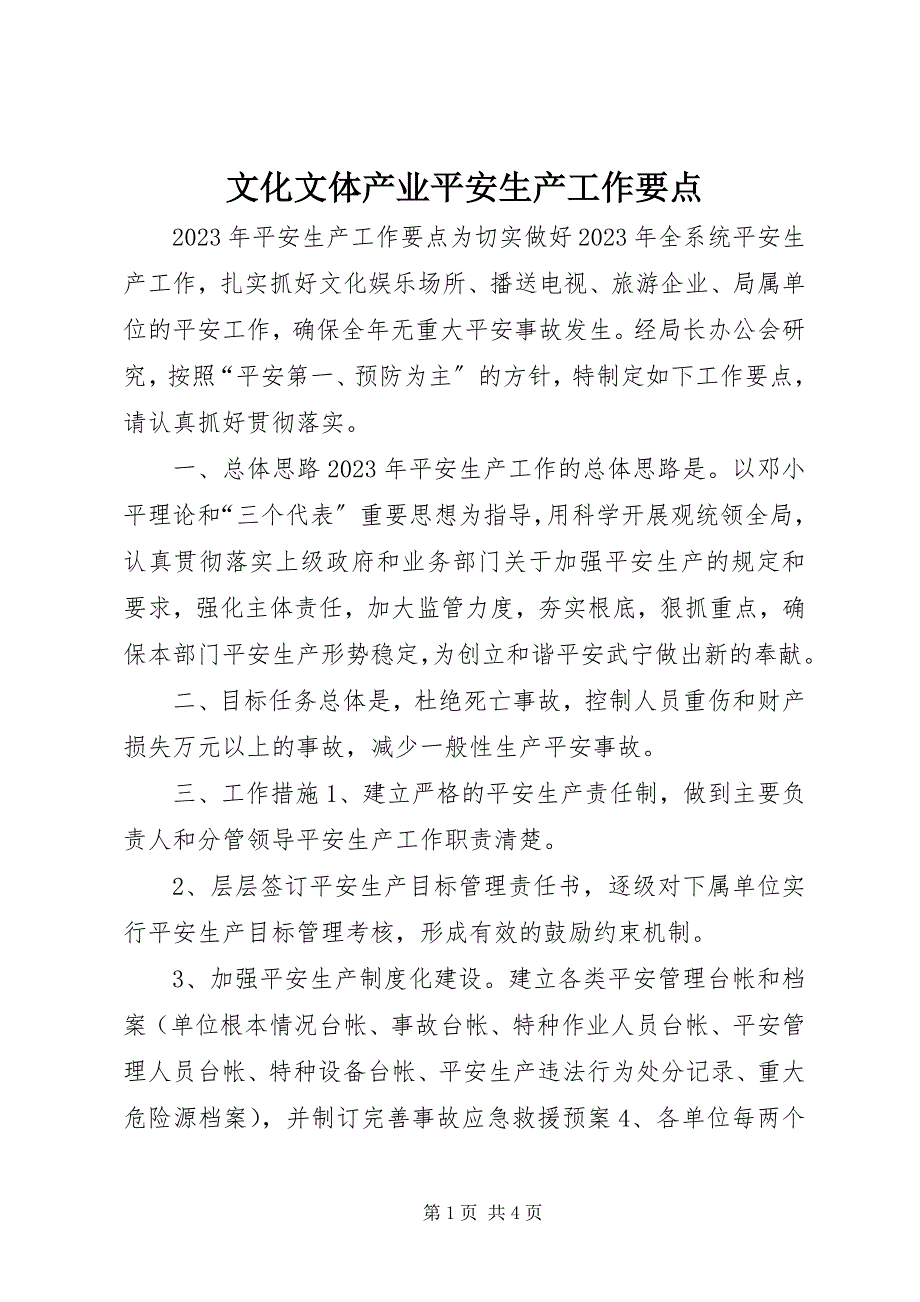 文化文体产业平安生产工作要点
2023 年平安生产工作要点为切实做好 2023 年全系统平安生
产工作，扎实抓好文化娱乐场所、播送电视、旅游企业、局属单
位的平安工作，确保全年无重大平安事故发生。经局长办公会研
究，按照“平安第一、预防为主〞的方针，特制定如下工作要点，
请认真抓好贯彻落实。
一、总体思路 2023 年平安生产工作的总体思路是。以邓小
平理论和“三个代表〞重要思想为指导，用科学开展观统领全局，
认真贯彻落实上级政府和业务部门关于加强平安生产的规定和
要求，强化主体责任，加大监管力度，夯实根底，狠抓重点，确
保本部门平安生产形势稳定，为创立和谐平安武宁做出新的奉献。
二、目标任务总体是，杜绝死亡事故，控制人员重伤和财产
损失万元以上的事故，减少一般性生产平安事故。
三、工作措施 1、建立严格的平安生产责任制，做到主要负
责人和分管领导平安生产工作职责清楚。
2、层层签订平安生产目标管理责任书，逐级对下属单位实
行平安生产目标管理考核，形成有效的鼓励约束机制。
3、加强平安生产制度化建设。建立各类平安管理台帐和档
案（单位根本情况台帐、事故台帐、特种作业人员台帐、平安管
理人员台帐、特种设备台帐、平安生产违法行为处分记录、重大
危险源档案），并制订完善事故应急救援预案 4、各单位每两个
第 1 页 共 4 页